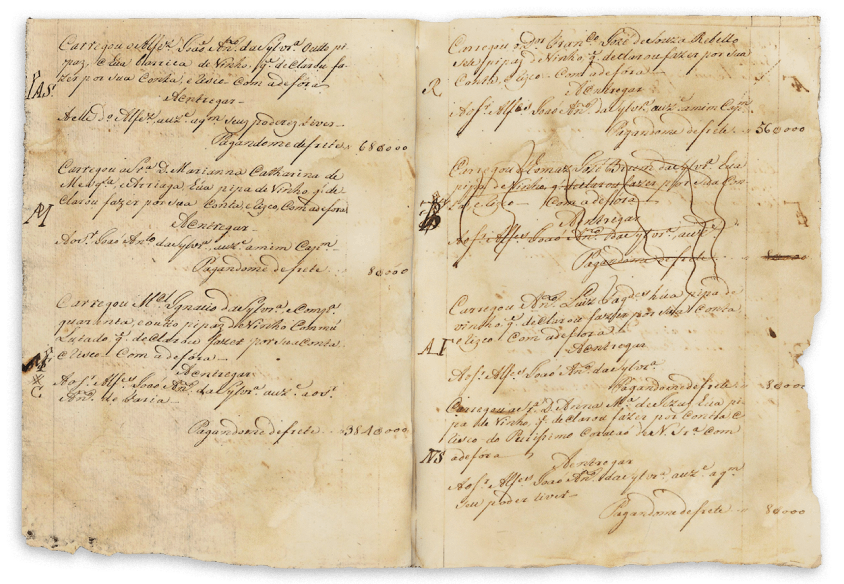 Carregou o Alfez. João Anto. da Sylvra. Outto pi
paz, e hũa barrica de Vinho, q. declarou fa
zer por sua Conta, e risco Com adefora
IAS.
Aentregar
Aelle do. Alfez. auze. aqm seuz poderez tiver
Pagandome de frete 68000
Carregou a Sra. D. Marianna Catharina de
e Arriaga hũa pipa de Vinho q. de
clarou fazer por sua Conta, e rizco, Com adefora
M
Aentregar
Ao Sr. João Anto. da Sylvra. auze. amim Capm.
Pagandome de frete 8000
Carregou Mel. Ignacio da Sylvra. e Compa.
quarenta, e outo pipaz de Vinho
q. declarou fazer por sua Conta
e risco Com adefora
C
Aentregar
Ao Sr. Alfes. João Anto. da Sylvra. auze. ao Sr.
Anto. de Faria
Pagandome de frete 384000
Carregou o Dor. Franco. José de Souza Rebello
pipaz de Vinho q. declarou fazer por sua
Conta, e rizco Com adefora
R
Aentregar
Ao Sr. Alfes. João Anto. da Sylvra. auze. amim Capm.
Pagandome de frete 56000
Carregou Thomaz José da Sylvra. hũa
pipa de vinho q. declarou fazer por sua Con
ta e rizco Com adefora
Aentregar
Ao Sr. Alfes. João Anto. da Sylvra. auze.
Pagandome de frete 8000
Carregou Anto. Luiz hũa pipa de
vinho q. declarou fazer por sua Conta
e rizco Com adefora
AI
Aentregar
Ao Sr. Alfes. João Anto. da Sylvra.
Pagandome de frete 8000
Carregou a Sra. D. Anna Ma. de Jezus hũa pi
pa de Vinho, q. declarou fazer por Conta e
risco do Coração de N. Sra. Com
NS
adefora
Aentregar
Ao Sr. Alfes. João Anto. da Sylvra. auze. aqm.
Seu poder tiver
Pagandome de frete 8000